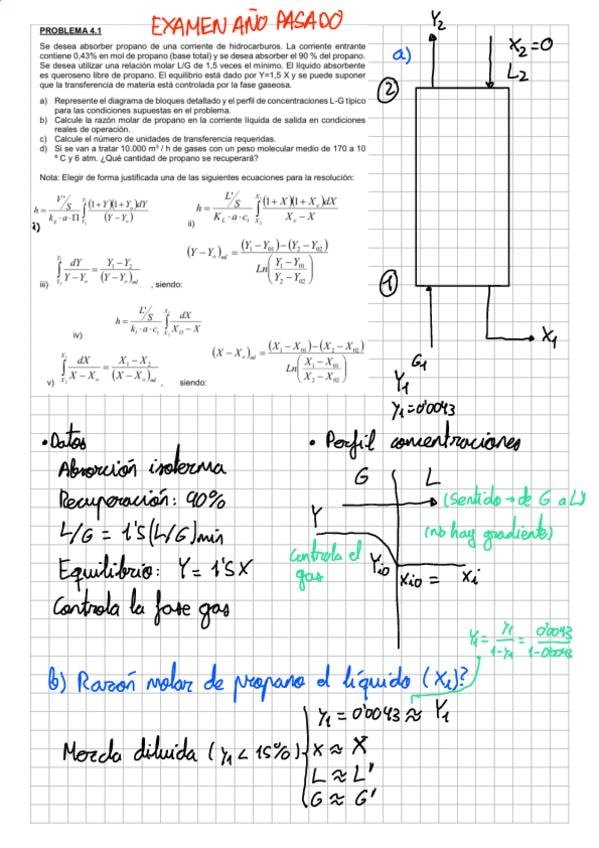 EXAMEN AÑO PASADO
PROBLEMA 4.1
Se desea absorber propano de una corriente de hidrocarburos. La corriente entrante
contiene 0,43% en mol de propano (base total) y se desea absorber el 90 % del propano.
Se desea utilizar una relación molar L/G de 1,5 veces el mínimo. El líquido absorbente
es queroseno libre de propano. El equilibrio está dado por Y=1,5 X y se puede suponer
que la transferencia de materia está controlada por la fase gaseosa.
a) Represente el diagrama de bloques detallado y el perfil de concentraciones L-G típico
para las condiciones supuestas en el problema.
b) Calcule la razón molar de propano en la corriente líquida de salida en condiciones
reales de operación.
c) Calcule el número de unidades de transferencia requeridas.
d) Si se van a tratar 10.000 m³ / h de gases con un peso molecular medio de 170 a 10
º C y 6 atm. ¿Qué cantidad de propano se recuperará?
Nota: Elegir de forma justificada una de las siguientes ecuaciones para la resolución:
i) h = (V'/S)/(k_g·a·Π) ∫ (1+Y)(1+Y_o)dY/(Y−Y_o)
ii) h = (L'/S)/(K_L·a·c_t) ∫ (1+X)(1+X_o)dX/(X_o−X)
iii) ∫ dY/(Y−Y_o) = (Y₁−Y₂)/(Y−Y_o)_ml , siendo: (Y−Y_o)_ml = ((Y₁−Y₀₁)−(Y₂−Y₀₂))/Ln((Y₁−Y₀₁)/(Y₂−Y₀₂))
iv) h = (L'/S)/(k_l·a·c_t) ∫ dX/(X_O−X)
v) ∫ dX/(X−X_o) = (X₁−X₂)/(X−X_o)_ml , siendo: (X−X_o)_ml = ((X₁−X₀₁)−(X₂−X₀₂))/Ln((X₁−X₀₁)/(X₂−X₀₂))
a)
Y₂
X₂=0
L₂
②
①
X₁
G₁
Y₁
y₁=0'0043
• Datos
Absorción isoterma
Recuperación: 90%
L/G = 1'5(L/G)min
Equilibrio: Y= 1'5X
Controla la fase gas
• Perfil concentraciones
G L
(Sentido → de G a L)
Y
(no hay gradiente)
Controla el
gas
Yio
Xio = Xi
Y₁ = y₁/(1-y₁) = 0'0043/(1-0'0043)
b) Razón molar de propano el líquido (X₁)?
y₁ = 0'0043 ≈ Y₁
Mezcla diluida (y₁ < 15%)
x ≈ X
L ≈ L'
G ≈ G'